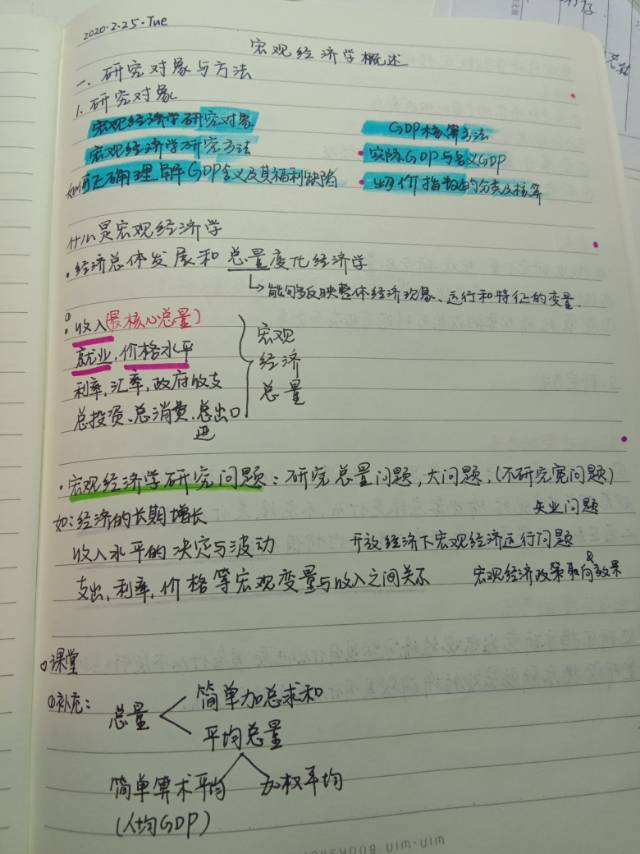 2020.2.25.Tue
宏观经济学概述
一、研究对象与方法
1.研究对象
宏观经济学研究对象
GDP核算方法
宏观经济学研究方法
·实际GDP与名义GDP
如何正确理解GDP含义及其福利缺陷
·物价指数的分类及核算
什么是宏观经济学
·经济总体发展和总量变化经济学
↳能够反映整体经济现象、运行和特征的变量.
收入(最核心总量)
就业,价格水平
利率,汇率,政府收支
总投资、总消费、总出口
进
宏观
经济
总量
·宏观经济学研究问题:研究总量问题,大问题.(不研究宽问题)
如:经济的长期增长
失业问题
收入水平的决定与波动
开放经济下宏观经济运行问题
支出,利率,价格等宏观变量与收入之间关系
宏观经济政策取向&效果
课堂
补充:
总量
简单加总求和
平均总量
简单算术平均
加权平均
(人均GDP)